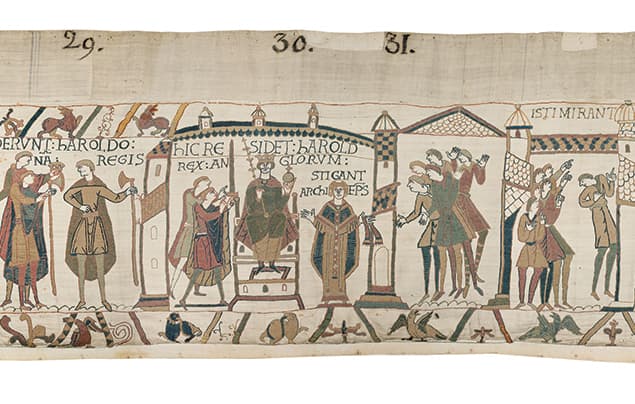 29. 30. 31.
DERVNT: hAROLDO:
NA: REGIS
hIC RESIDET: hAROLD
REX: ANGLORVM:
STIGANT
ARCHIEPS
ISTI MIRANT